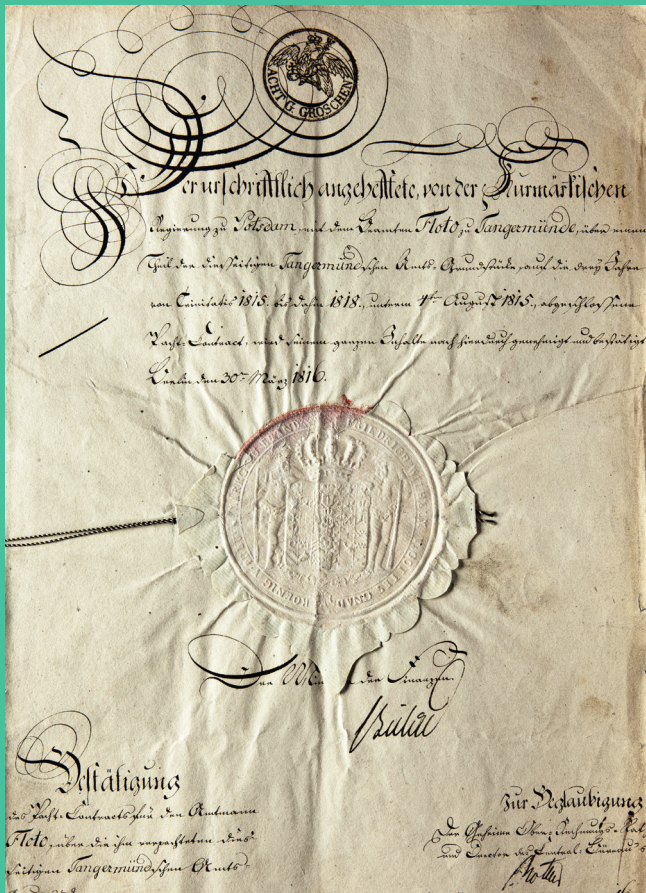 ACHT G. GROSCHEN
Der urschriftlich angeheftete, von der Kurmärkischen
Regierung zu Potsdam, mit dem Beamten Floto, zu Tangermünde, über einen
Theil der diesseitigen Tangermündschen Amts-Grundstücke, auf die drey Jahre
von Trinitatis 1815. bis dahin 1818., unterm 4ten August 1815, abgeschlossene
Pacht-Contract, wird seinem ganzen Inhalte nach hierdurch genehmigt und bestätigt
Berlin den 30ten März 1816.
FRIEDRICH WILHELM GOTTES GNAD KOENIG
Der der Finanzen.
Bülow
Bestätigung
des Pacht-Contracts für den Amtmann
Floto, über die ihm verpachteten dies-
seitigen Tangermündschen Amts-
Zur Beglaubigung
Der Geheime Ober-Rechnungs-Rath
und Director des Central-Büreau's
Rother